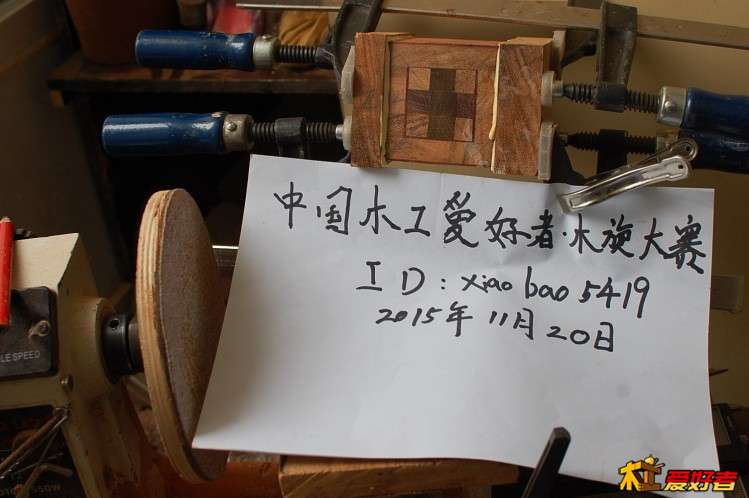 中国木工爱好者·木旋大赛
ID：xiaobao5419
2015年11月20日
LE SPEED
550W
木工爱好者